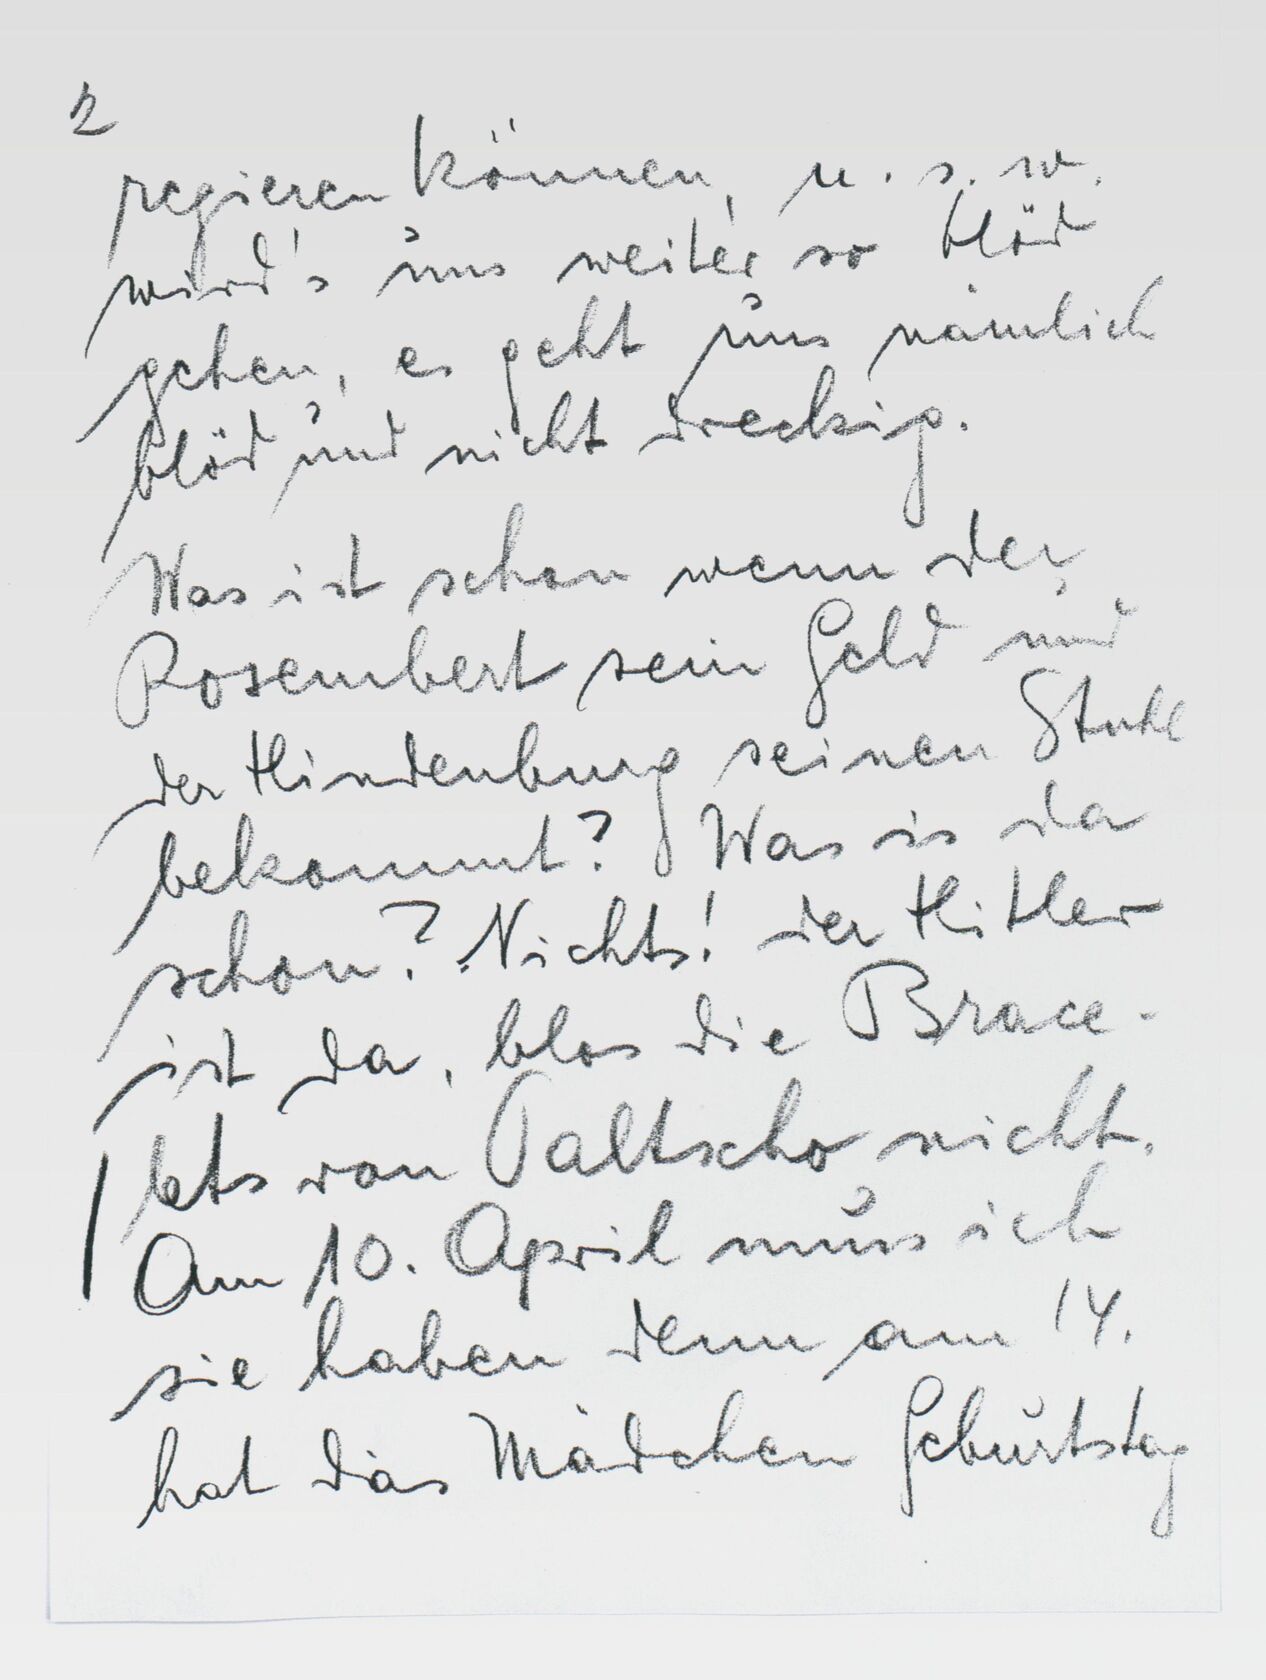 2
regieren können, u. s. w.
wird's uns weiter so blöd
gehen, es geht uns nämlich
blöd und nicht dreckig.
Was ist schon wenn der
Rosembert sein Geld und
der Hindenburg seinen Stuhl
bekommt? Was is da
schon? Nichts! der Hitler
ist da, blos die Brace-
lets von Paltscho nicht.
Am 10. April muss ich
sie haben denn am 14.
hat das Mädchen Geburtstag